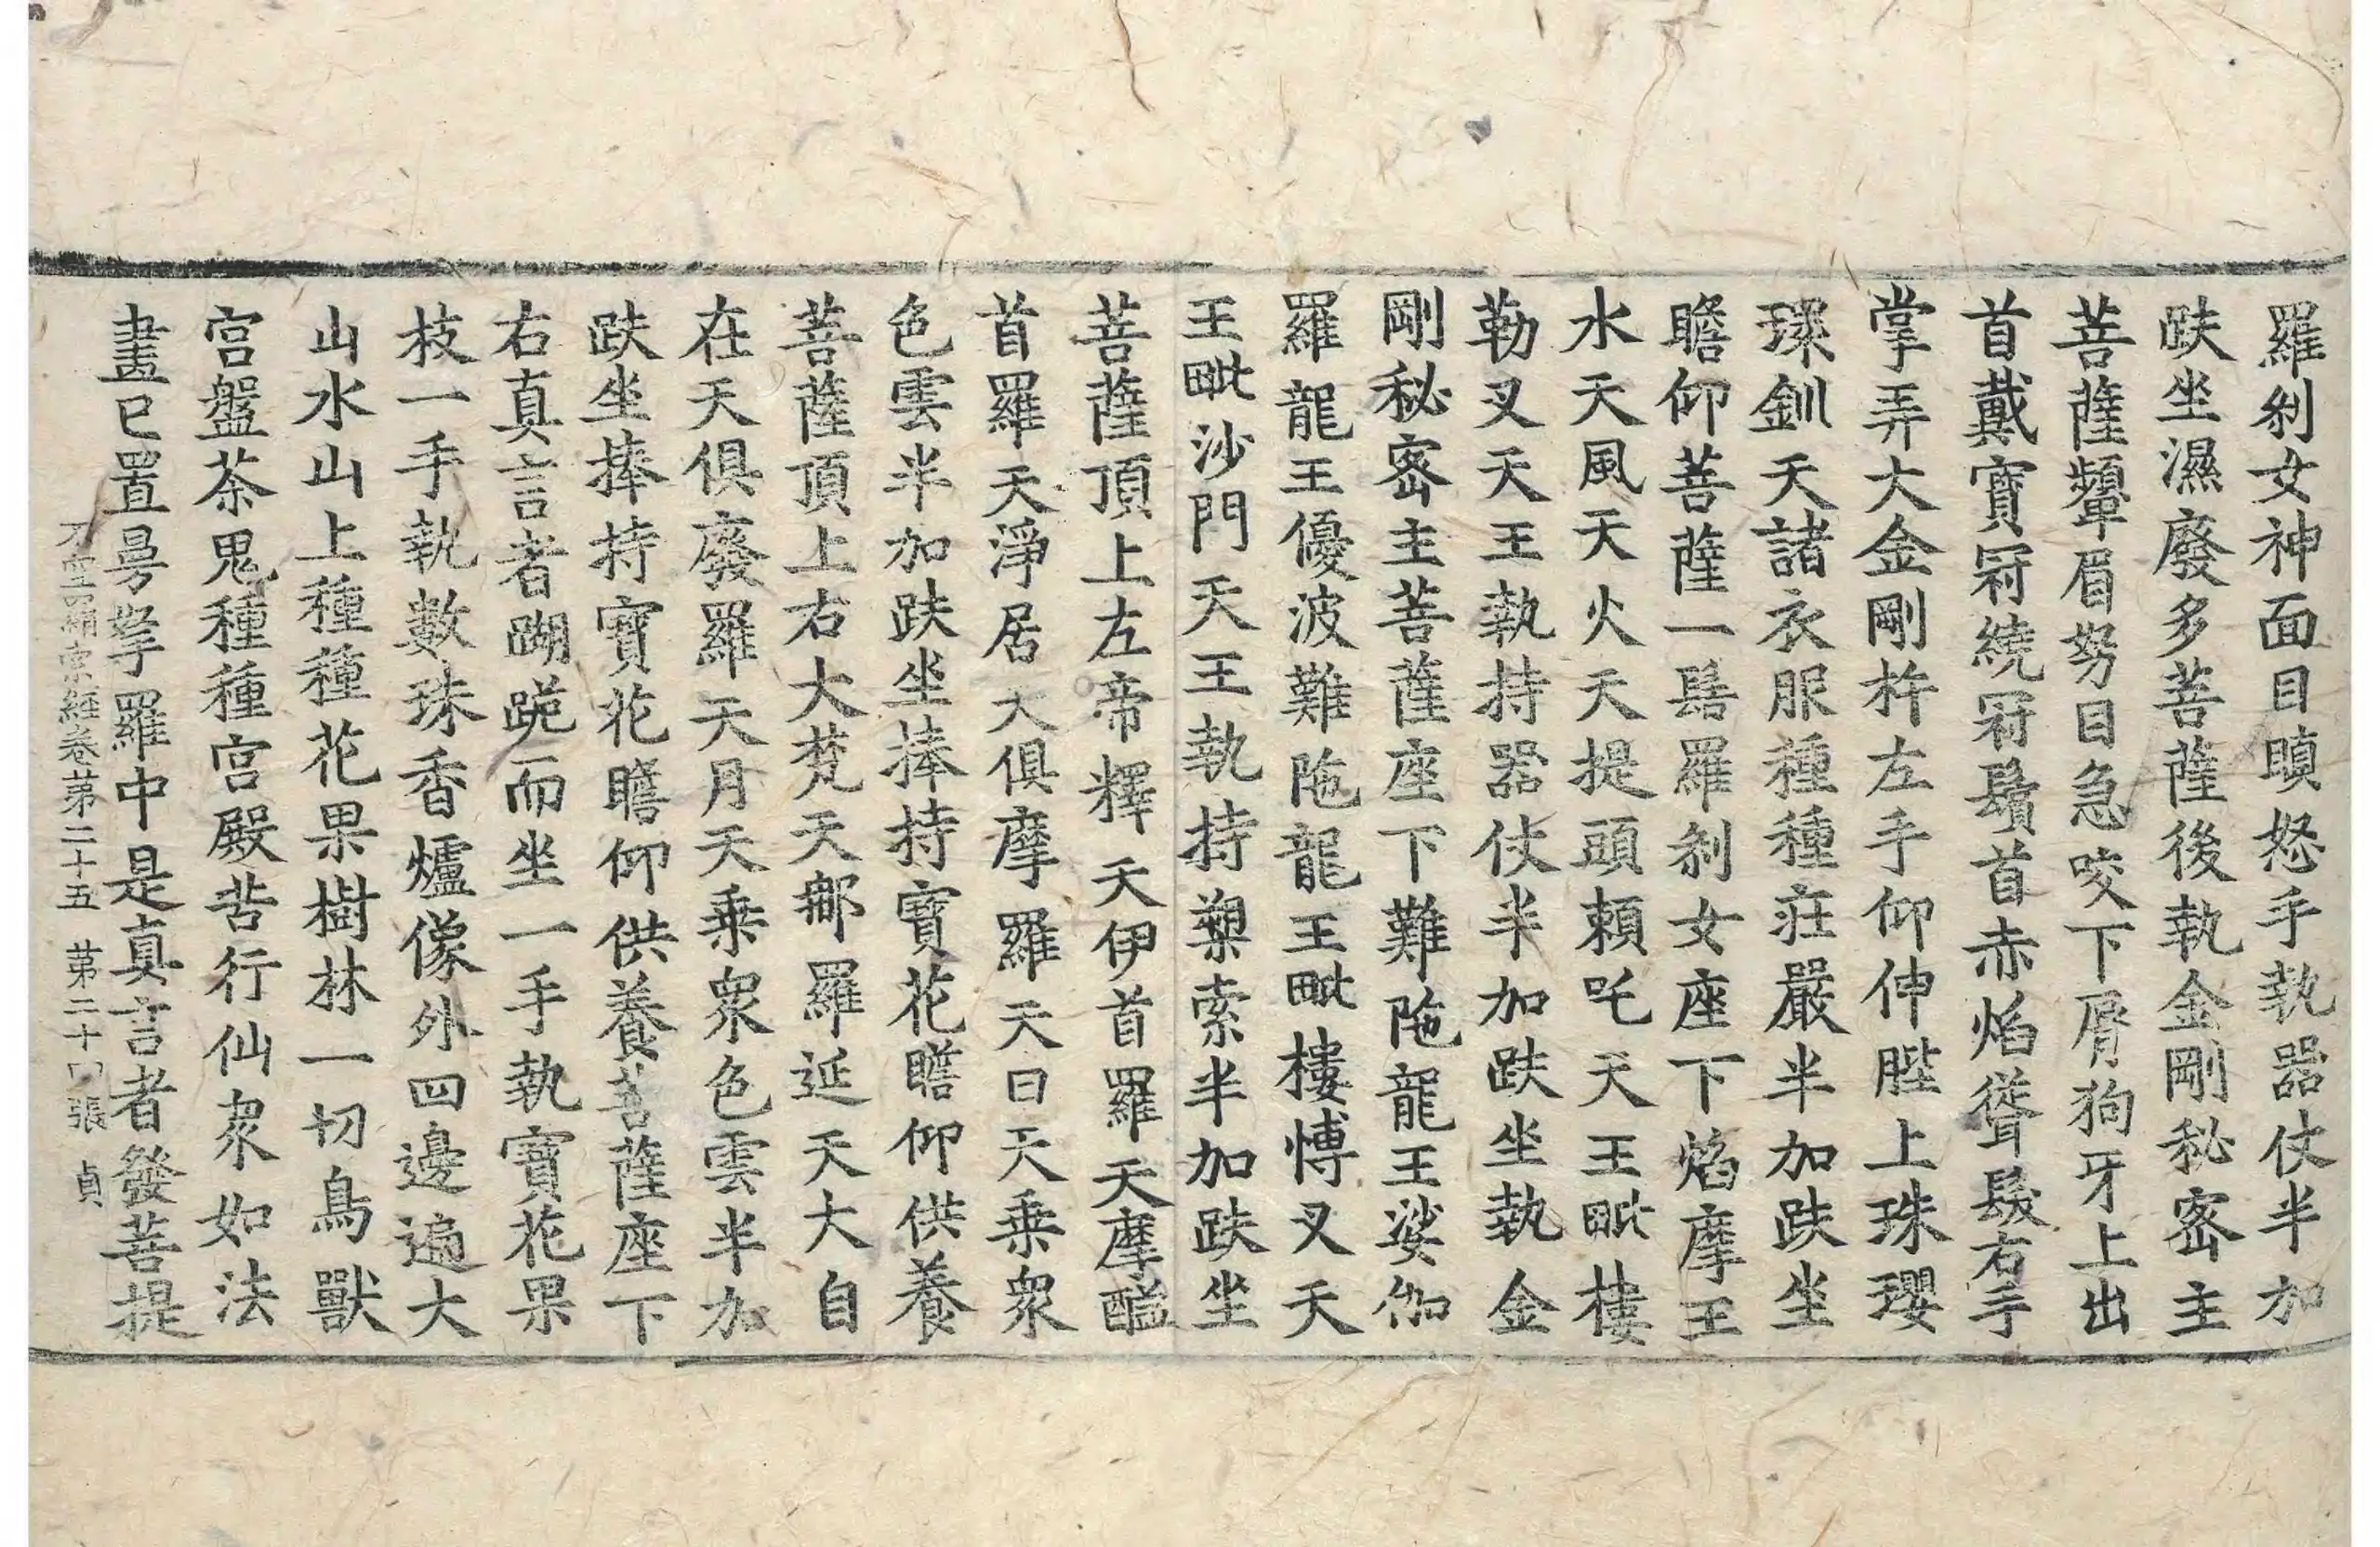 羅刹女神面目瞋怒手執器仗半加
趺坐濕廢多菩薩後執金剛秘密主
菩薩顰眉努目急咬下脣狗牙上出
首戴寶冠繞冠鬚首赤焰聳髮右手
掌弄大金剛杵左手仰伸䏶上珠瓔
璖釧天諸衣服種種莊嚴半加趺坐
瞻仰菩薩一髻羅刹女座下焰摩王
水天風天火天提頭頼吒天王毗樓
勒叉天王執持器仗半加趺坐執金
剛秘密主菩薩座下難陁龍王娑伽
羅龍王優波難陁龍王毗樓博叉天
王毗沙門天王執持槊索半加趺坐
菩薩頂上左帝釋天伊首羅天摩醯
首羅天淨居天俱摩羅天日天乗衆
色雲半加趺坐捧持寶花瞻仰供養
菩薩頂上右大梵天郍羅延天大自
在天俱廢羅天月天乗衆色雲半加
趺坐捧持寶花瞻仰供養菩薩座下
右真言者䠒跪而坐一手執寶花果
枝一手執數珠香爐像外四邊遍大
山水山上種種花果樹林一切鳥獸
宮盤茶鬼種種宮殿苦行仙衆如法
畫已置曼拏羅中是真言者發菩提
不空羂索經卷苐二十五 苐二十四張 貞